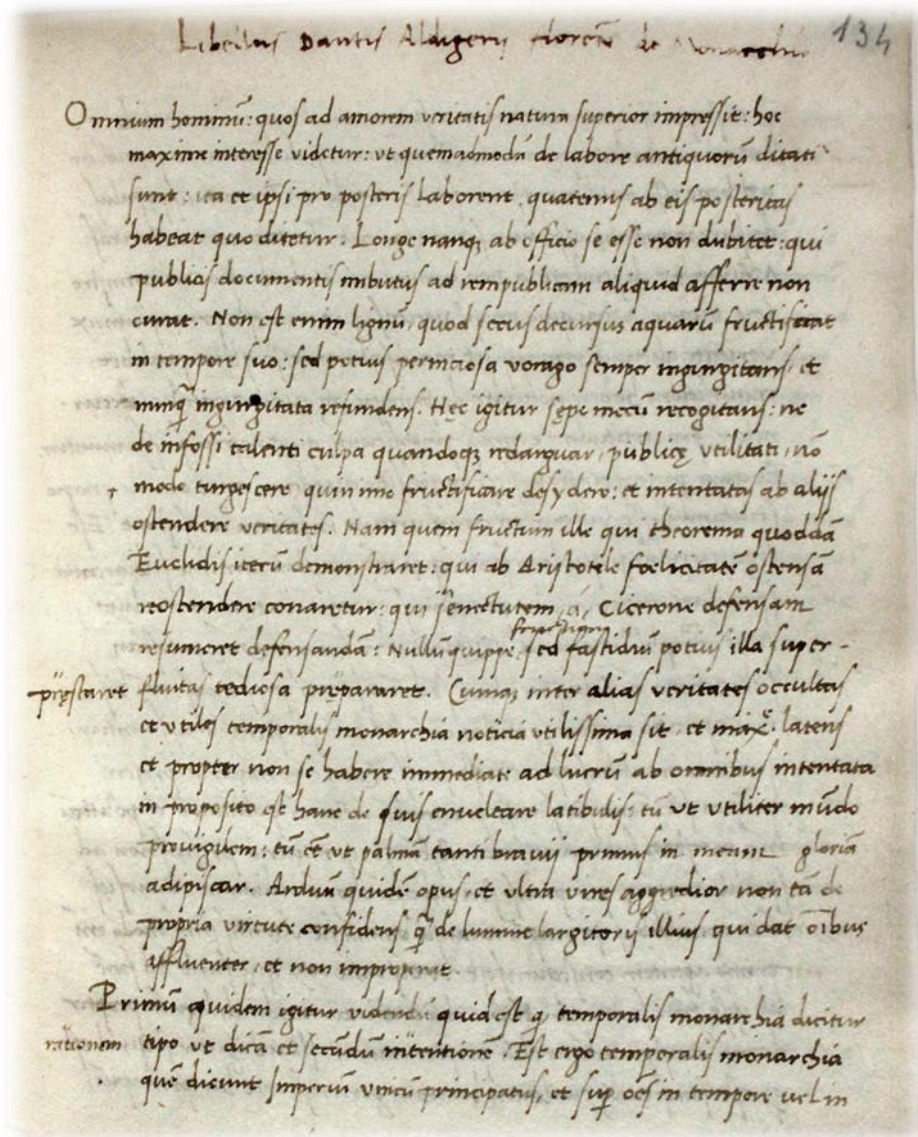 Libellus Dantis Aldigerii floren de Monarchia 134
Omnium hominū: quos ad amorem veritatis natura superior impressit: hoc
maxime interesse videtur: vt quemadmodū de labore antiquorū ditati
sunt: ita et ipsi pro posteris laborent, quatenus ab eis posteritas
habeat quo ditetur. Longe nanq; ab officio se esse non dubitet: qui
publicis documentis imbutus ad rempublicam aliquid afferre non
curat. Non est enim lignū, quod secus decursus aquarū fructificat
in tempore suo: sed potius perniciosa vorago semper ingurgitans, et
nunq̄ ingurgitata refundens. Hęc igitur sępe mecū recogitans: ne
de infossi talenti culpa quandoq; redarguar, publicę vtilitati, nō
modo turgescere quin imo fructificare desydero: et intentatas ab alijs
ostendere veritates. Nam quem fructum ille qui theorema quoddā
Euclidis iterū demonstraret: qui ab Aristotele foelicitatē ostensā
reostendere conaretur: qui senectutem, á, Cicerone defensam
resumeret defensandā: Nullū quippe, sed fastidiū potius illa super-
pręstaret fluitas tediosa prępararet. Cumq; inter alias veritates occultas
et vtiles temporalis monarchia noticia vtilissima sit, et maxē latens
et propter non se habere immediate ad lucrū ab omnibus intentata
in proposito est hanc de suis enucleare latibulis: tū vt vtiliter mūdo
prouigilem: tū et vt palmā tanti brauii primus in meam gloriā
adipiscar. Arduū quidē opus, et vltra vires aggredior non tā de
propria virtute confidens, q̄ de lumine largitoris illius, qui dat oībus
affluenter, et non improperat.
Primū quidem igitur videndū quid est q̄ temporalis monarchia dicitur
rationem tipo vt dicā et secundū intentionē. Est ergo temporalis monarchia
quē dicunt Imperiū vnicū principatus, et sup oēs in tempore vel in